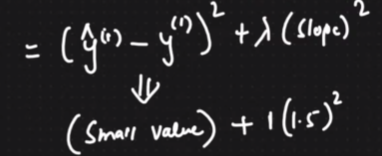 = (ŷ⁽ⁱ⁾ − y⁽ⁱ⁾)² + λ (Slope)²
⇓
(Small value) + 1 (1.5)²